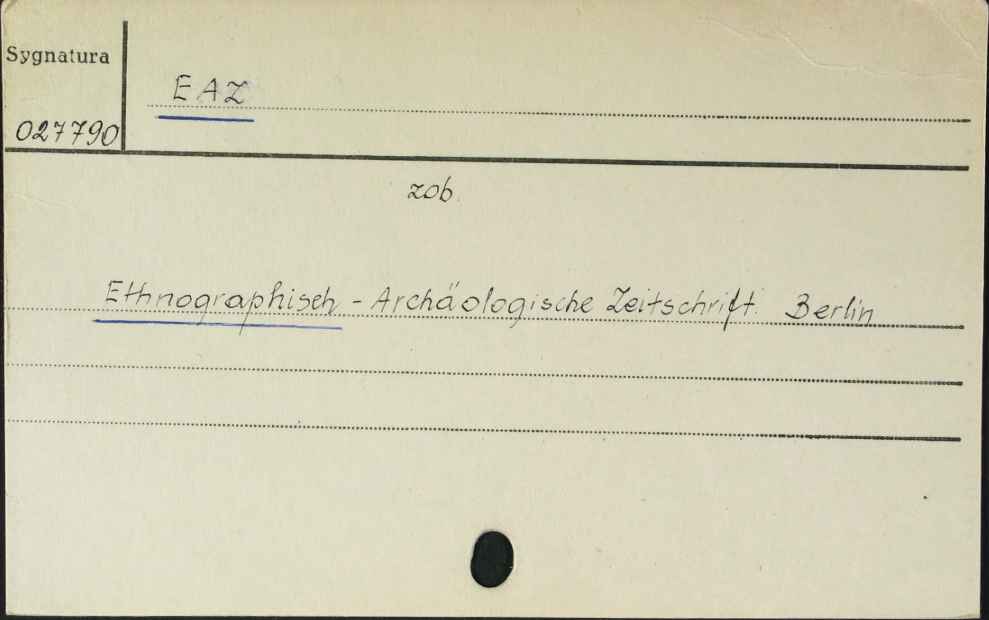 Sygnatura
EAZ
027790
zob.
Ethnographisch - Archäologische Zeitschrift. Berlin